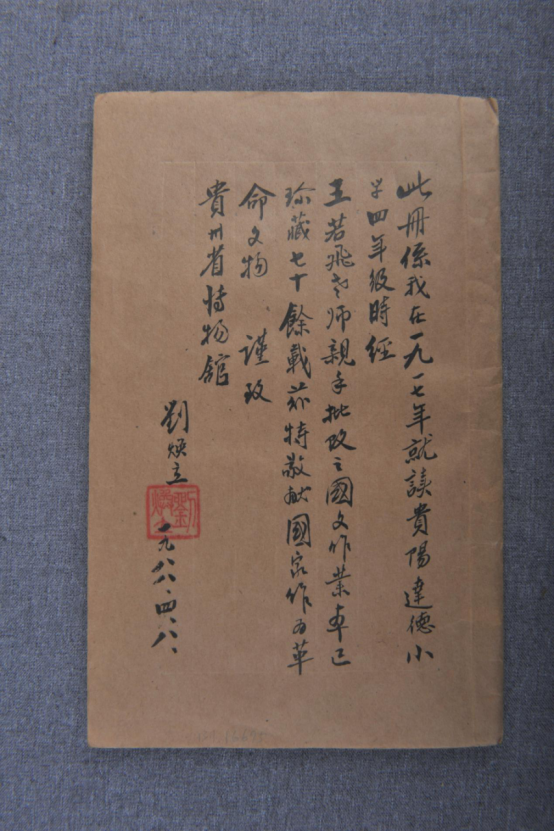 此冊係我在一九一七年就讀貴陽達德小
学四年級時經
王若飛老師親手批改之國文作業本已
珍藏七十餘載茲特敬献國家作為革
命文物、謹致
貴州省博物舘
劉焕立
一九八八、四、八、